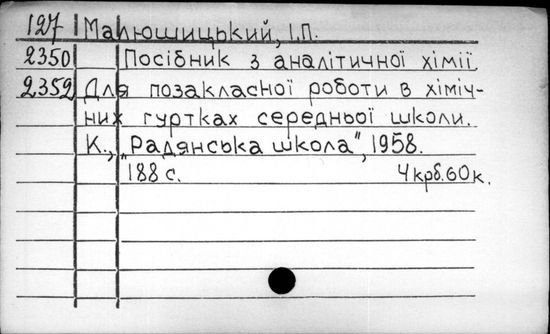 127 Малюшицький, І.П.
2350 Посібник з аналітичної хімії.
2352 Для позакласної роботи в хіміч-
них гуртках середньої школи.
К., „Радянська школа", 1958.
188 с. 4 крб. 60 к.